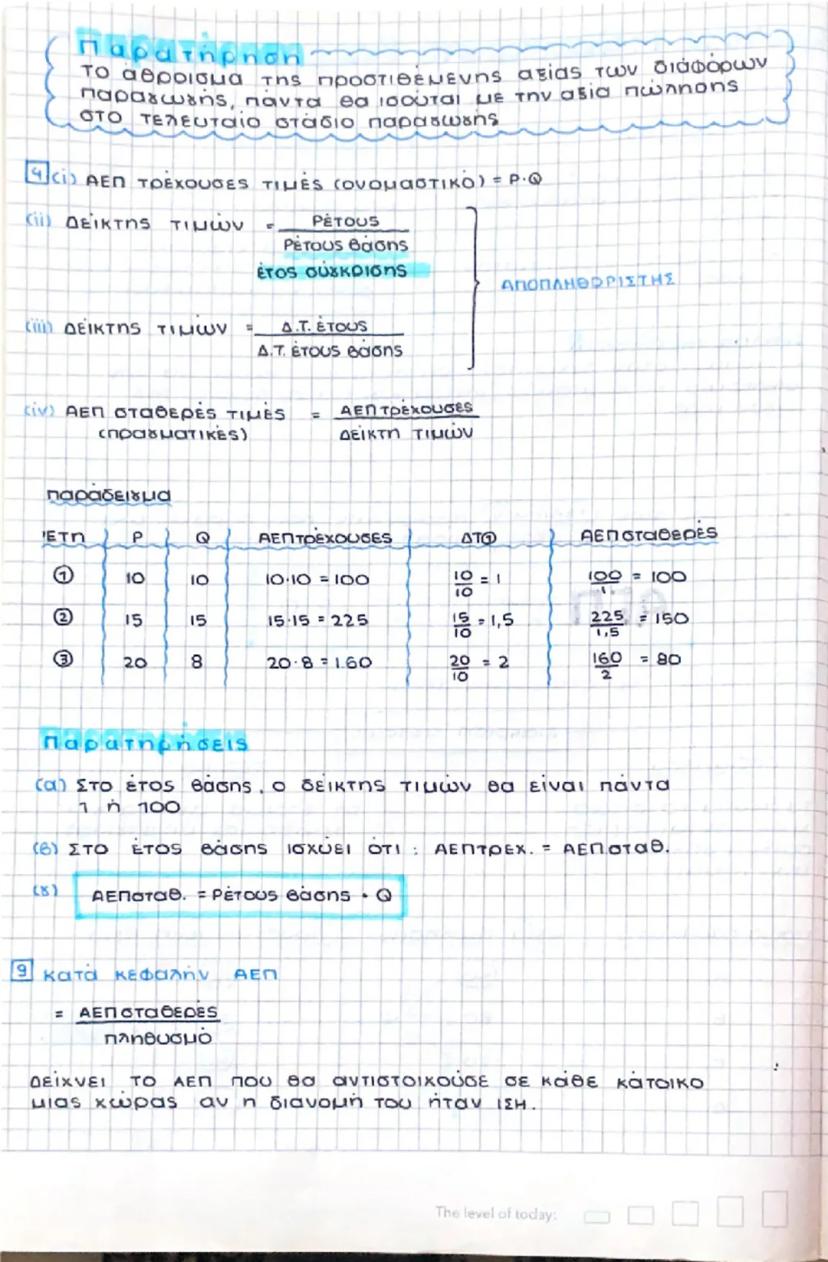 Παρατήρηση
Το άθροισμα της προστιθέμενης αξίας των διάφόρων
παραγωγής, πάντα θα ισούται με την αξία πώλησης
στο τελευταίο στάδιο παραγωγής
4 (i) ΑΕΠ τρέχουσες τιμές (ονομαστικό) = P·Q
(ii) Δείκτης τιμών = Ρέτους
Ρέτους βάσης
έτος σύγκρισης
ΑΠΟΠΛΗΘΩΡΙΣΤΗΣ
(iii) Δείκτης τιμών = Δ.Τ. έτους
Δ.Τ. έτους βάσης
(iv) ΑΕΠ σταθερές τιμές = ΑΕΠ τρέχουσες
(πραγματικές) Δείκτη τιμών
παράδειγμα
Έτη P Q ΑΕΠτρέχουσες ΔΤ① ΑΕΠσταθερές
① 10 10 10·10 = 100 10/10 = 1 100/1 = 100
② 15 15 15·15 = 225 15/10 = 1,5 225/1,5 = 150
③ 20 8 20·8 = 160 20/10 = 2 160/2 = 80
Παρατηρήσεις
(α) Στο έτος βάσης, ο δείκτης τιμών θα είναι πάντα
1 ή 100
(β) Στο έτος βάσης ισχύει ότι : ΑΕΠτρεχ. = ΑΕΠσταθ.
(γ) ΑΕΠσταθ. = Ρέτους βάσης · Q
9 Κατά κεφαλήν ΑΕΠ
= ΑΕΠσταθερές
πληθυσμό
Δείχνει το ΑΕΠ που θα αντιστοιχούσε σε κάθε κάτοικο
μιας χώρας αν η διανομή του ήταν ΙΣΗ.
The level of today: